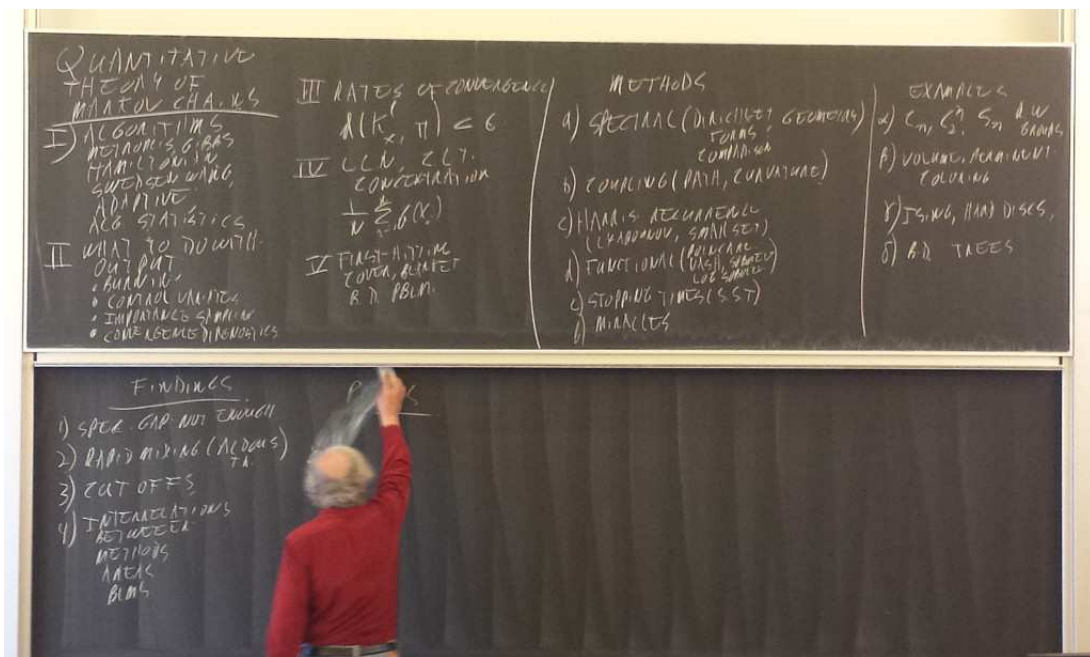 QUANTITATIVE
THEORY OF
MARKOV CHAINS
I) ALGORITHMS
METROPOLIS, GIBBS
HAMILTONIAN
SWENDSEN WANG,
ADAPTIVE
ALG STATISTICS
II WHAT TO DO WITH
OUTPUT
• BURNIN
• CONTROL VARIATES
• IMPORTANCE SAMPLING
• CONVERGENCE DIAGNOSTICS
III RATES OF CONVERGENCE
IV LLN, CLT.
CONCENTRATION
V FIRST-HITTING
COVER, BLANKET
B.D. PBLM.
METHODS
a) SPECTRAL (DIRICHLET FORMS, GEOMETRY,
COMPARISON
b) COUPLING (PATH, CURVATURE)
c) HARRIS RECURRENCE
(LYAPUNOV, SMALL SET)
d) FUNCTIONAL (POINCARE
NASH, SOBOLEV
LOG SOBOLEV
e) STOPPING TIMES (SST)
f) MIRACLES
EXAMPLES
α) RW
GROUPS
β) VOLUME, PERMANENT.
COLORING
γ) ISING, HARD DISCS,
δ) B.D. TREES
FINDINGS
1) SPEC. GAP NOT ENOUGH
2) RAPID MIXING (ALDOUS)
3) CUT OFFS
4) INTERRELATIONS
BETWEEN
METHODS
AREAS